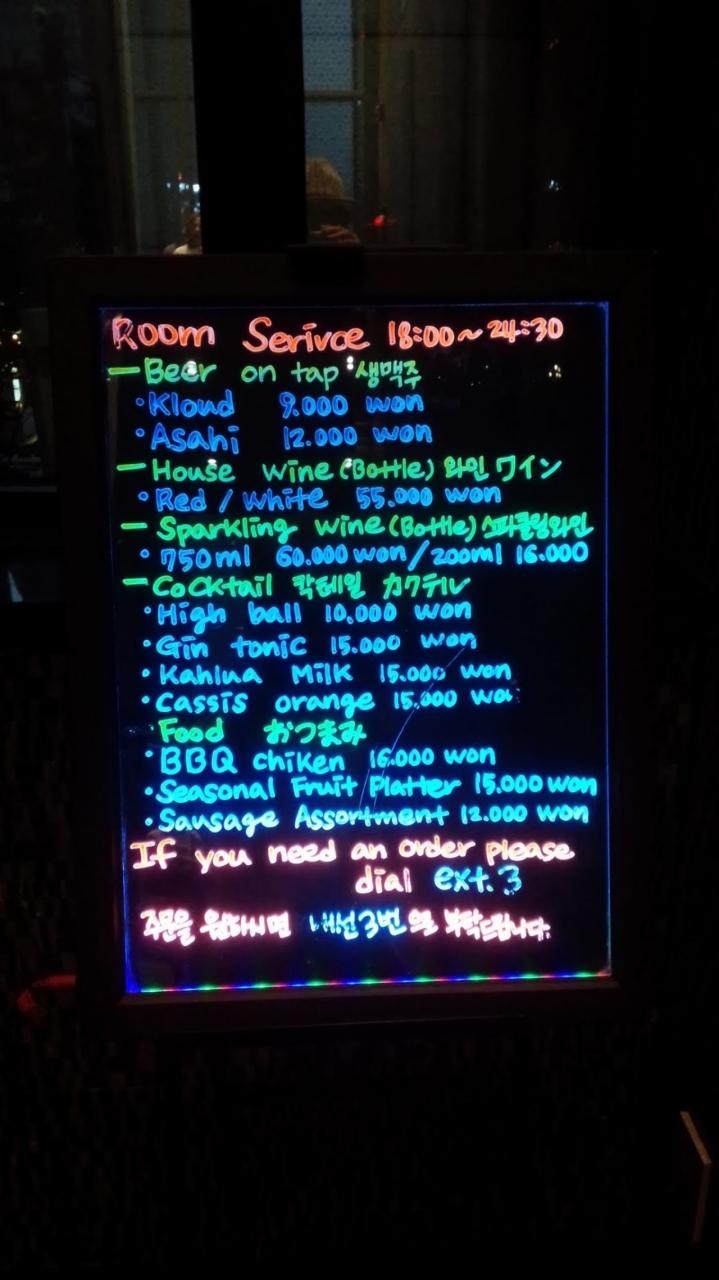 Room Serivce 18:00~24:30
— Beer on tap 생맥주
· Kloud 9.000 won
· Asahi 12.000 won
— House wine (Bottle) 와인 ワイン
· Red / white 55.000 won
— Sparkling wine (Bottle) 스파클링와인
· 750ml 60.000 won / 200ml 16.000
— Cocktail 칵테일 カクテル
· High ball 10.000 won
· Gin tonic 15.000 won
· Kahlua Milk 15.000 won
· Cassis orange 15.000 won
Food おつまみ
· BBQ chiken 16.000 won
· Seasonal Fruit Platter 15.000 won
· Sausage Assortment 12.000 won
If you need an order please
dial ext. 3
주문을 원하시면 내선 3번으로 부탁드립니다.